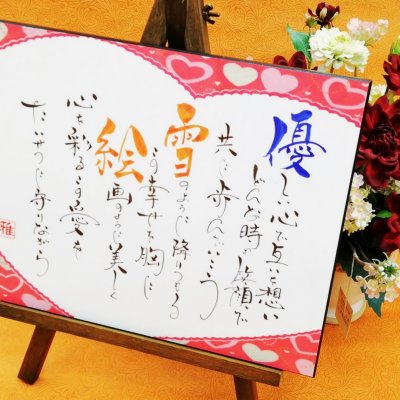 優しい心で互いを想い
どんな時も笑顔で
共に歩んでいこう
雪のように降りつもる
この幸せを胸に
絵画のように美しく
心を彩るこの愛を
たいせつに守りながら
雅